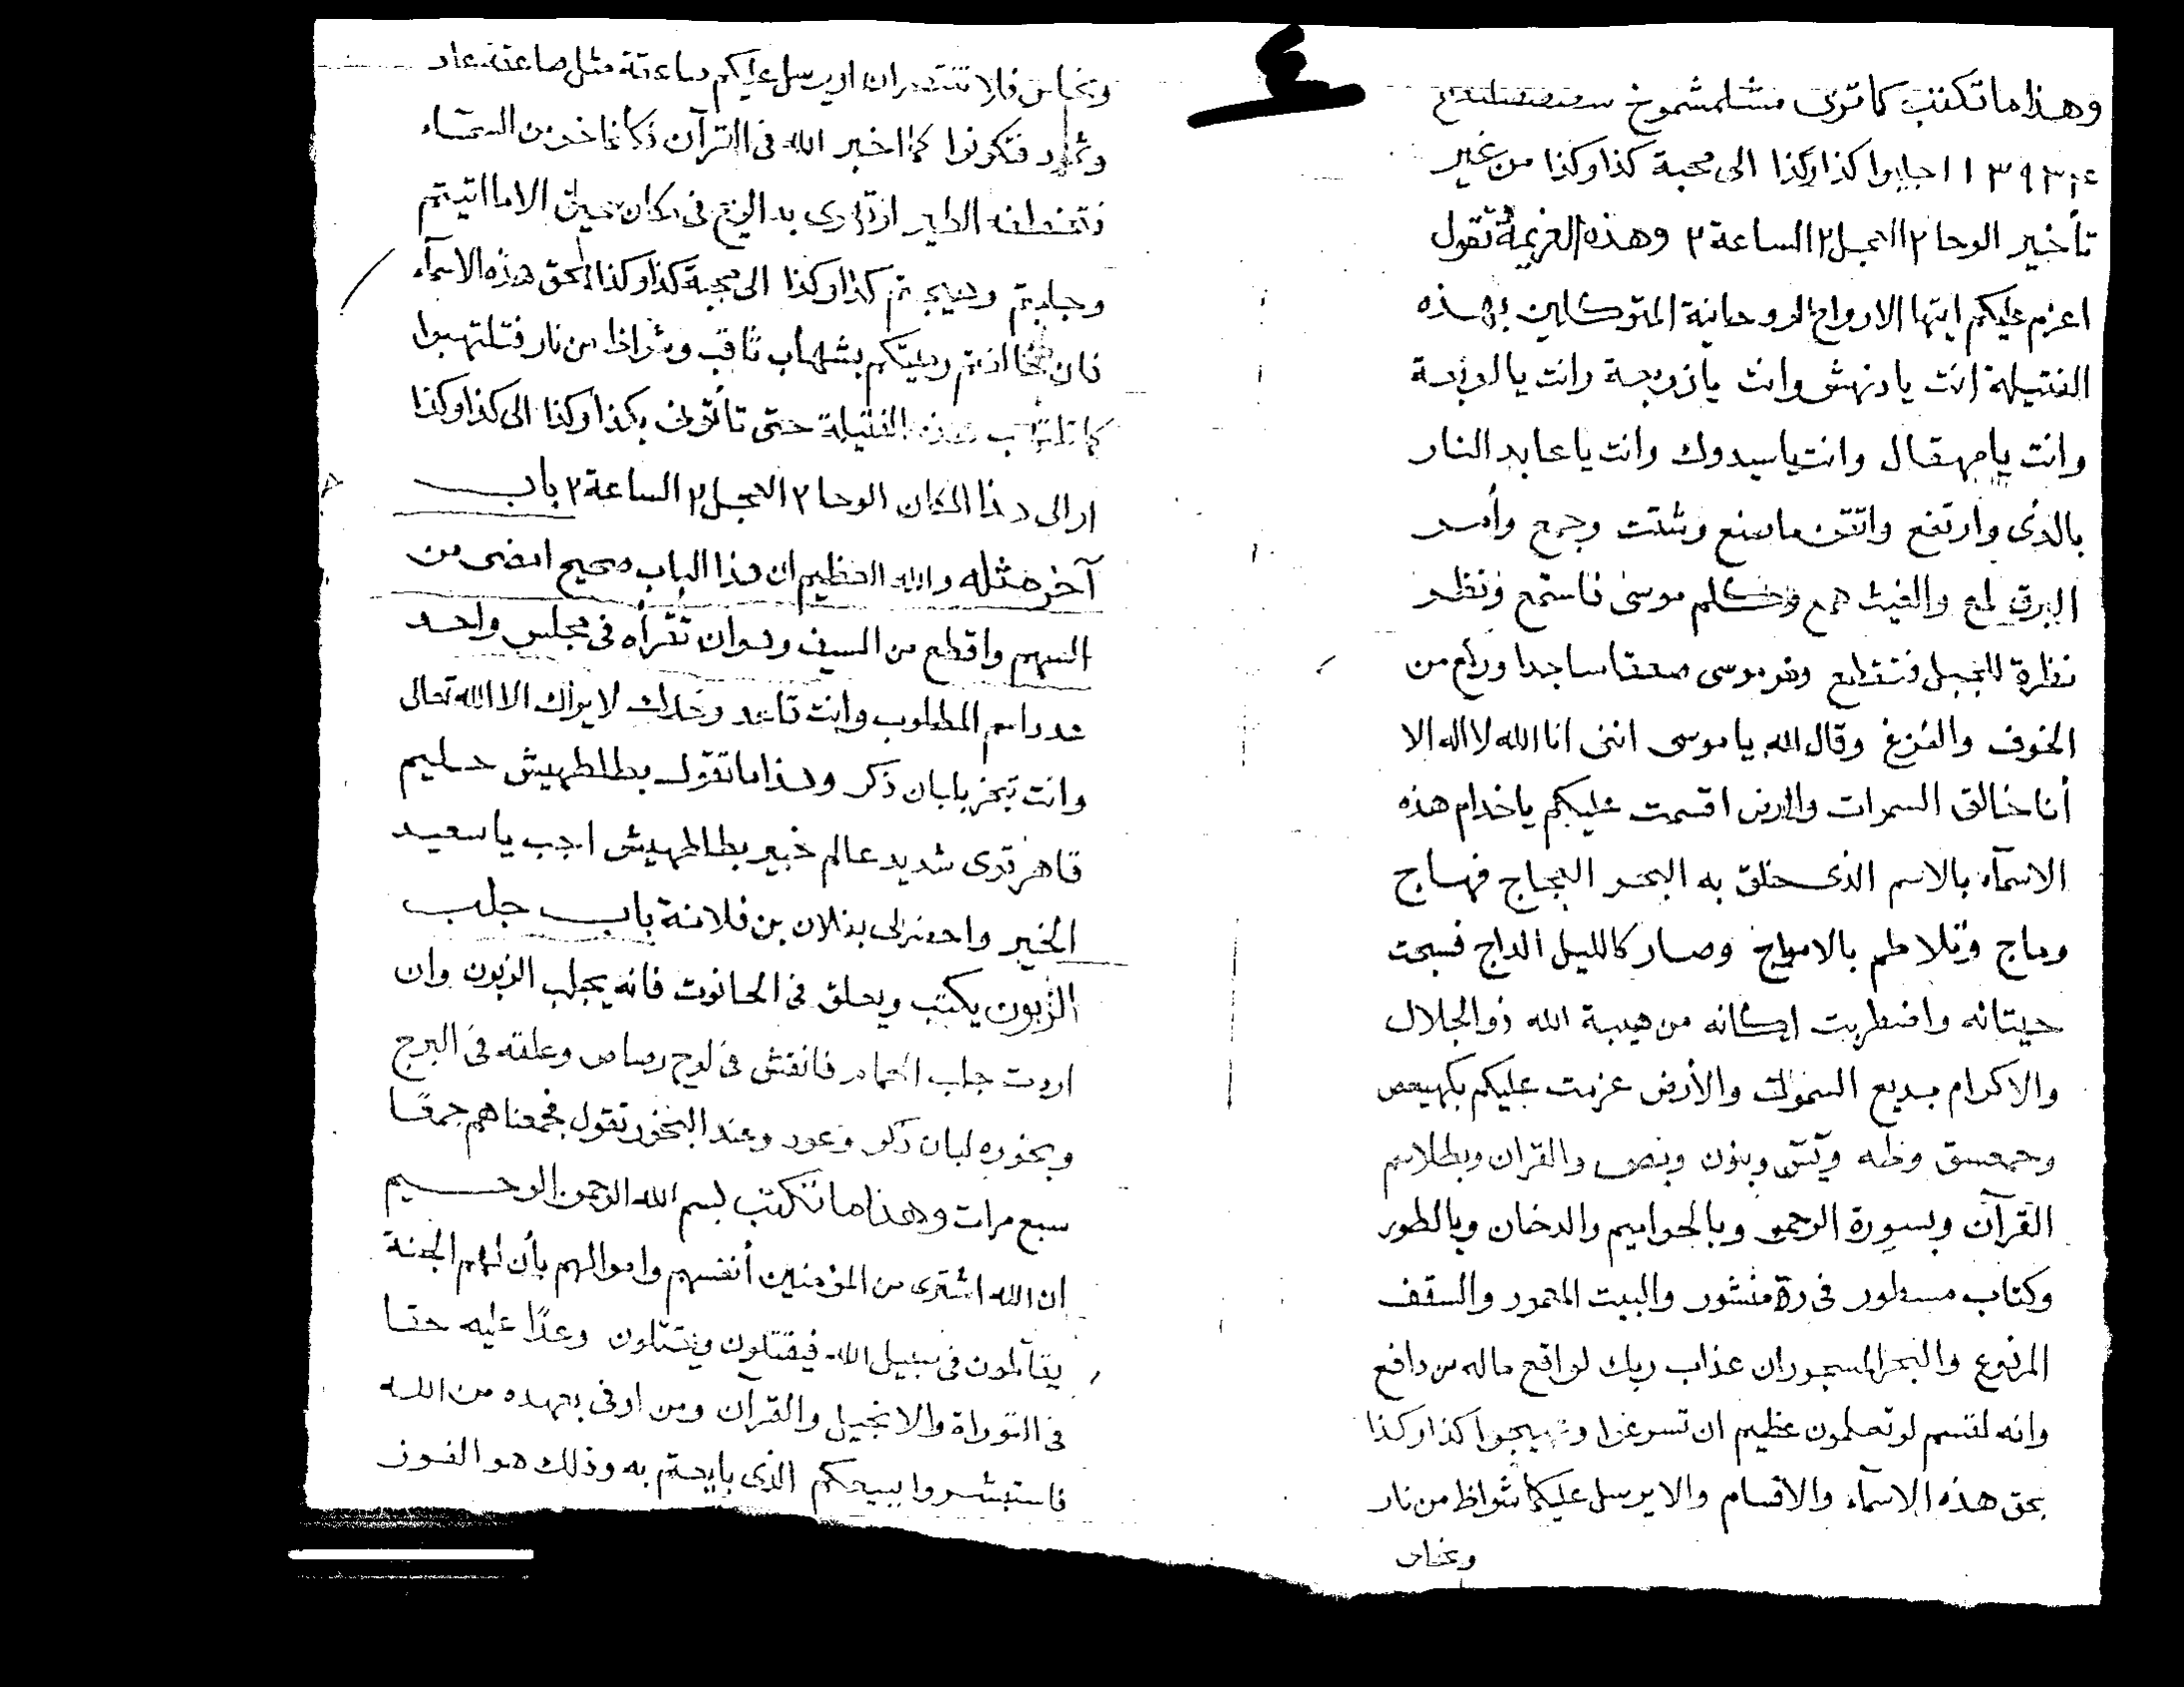 ٤
وهذا ما تكتب كما ترى مشلمشموخ
١١٣٩٣٤ اجلبوا كذا وكذا الى محبة كذا وكذا من غير
تأخير الوحا ٢ العجل ٢ الساعة ٢ وهذه العزيمة تقول
اعزم عليكم ايتها الارواح الروحانية المتوكلين بهذه
الفتيلة انت يا دنهش وانت يا زوبعة وانت يا
وانت يا مهقال وانت يا سيدوك وانت يا عابد النار
بالذى وارتفع واتقن ما صنع وشتت وجمع وأمر
البرق لمع والغيث همع وكلم موسى فاستمع ونظر
نظرة للجبل فتقطع وخر موسى صعقا ساجدا ورلع من
الخوف والفزع وقال الله يا موسى اننى انا الله لا اله الا
أنا خالق السموات والارض اقسمت عليكم يا خدام هذه
الاسمآء بالاسم الذى خلق به البحر العجاج فهاج
وماج وتلاطم بالامواج وصار كالليل الداج فسبحت
حيتانه واضطربت اركانه من هيبة الله ذو الجلال
والاكرام بديع السموات والأرض عزمت عليكم بكهيعص
وحمعسق وطه ويس وبنون وبنص والقران وبطلاسم
القرآن وبسورة الرحمن وبالحواميم والدخان وبالطور
وكتاب مسطور فى رق منشور والبيت المعمور والسقف
المرفوع والبحر المسجور ان عذاب ربك لواقع ماله من دافع
وانه لقسم لو تعلمون عظيم ان تسرعوا وتهيجوا كذا وكذا
بحق هذه الاسمآء والاقسام والا يرسل عليكما شواظ من نار
ونحاس
ونحاس فلا تنتصران او يرسل عليكم صاعقة مثل صاعقة عاد
وثمود فتكونوا كما اخبر الله فى القرآن فكانما خر من السمآء
فتخطفه الطير او تهوى به الريح فى مكان سحيق الا ما اتيتم
وجلبتم وهيجتم كذا وكذا الى محبة كذا وكذا بحق هذه الاسمآء
فان خالفتم رميتكم بشهاب ثاقب وشواظ من نار فتلتهبوا
كما تلتهب هذه الفتيلة حتى تأتونى بكذا وكذا الى كذا وكذا
او الى هذا المكان الوحا ٢ العجل ٢ الساعة ٢ باب
آخر مثله والله العظيم ان هذا الباب صحيح امضى من
السهم واقطع من السيف وهو ان تقرأه فى مجلس واحد
عدد اسم المطلوب وانت قاعد وحدك لا يراك الا الله تعالى
وانت تبخر بلبان ذكر وهذا ما تقول بطلطهيش حليم
قاهر قوى شديد عالم خبير بطلطهيش اجب يا سعيد
الخير واحضر لى بفلان بن فلانة باب جلب
الزبون يكتب ويعلق فى الحانوت فانه يجلب الزبون وان
اردت جلب الحمام فانقش فى لوح رصاص وعلقه فى البرج
وبخوره لبان ذكر وعود وعند البخور تقول فجمعناهم جمعًا
سبع مرات وهذا ما تكتب بسم الله الرحمن الرحيم
ان الله اشترى من المؤمنين أنفسهم واموالهم بأن لهم الجنة
يقاتلون فى سبيل الله فيقتلون ويقتلون وعدًا عليه حقا
فى التوراة والانجيل والقرآن ومن اوفى بعهده من الله
فاستبشروا ببيعكم الذى بايعتم به وذلك هو الفوز